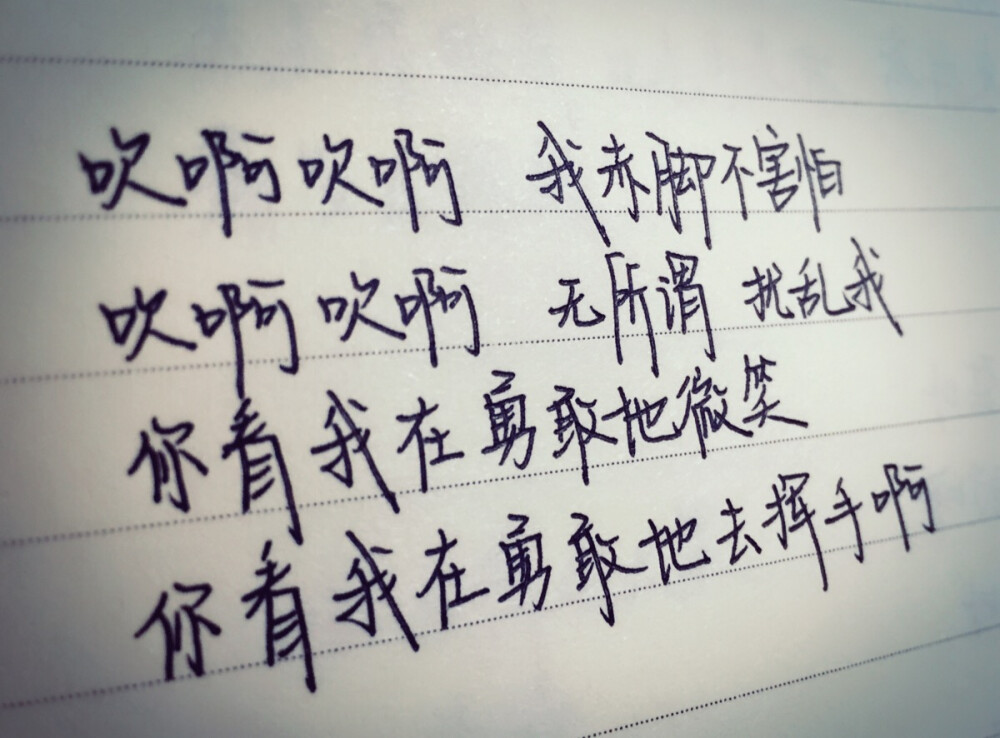 吹啊吹啊 我赤脚不害怕
吹啊吹啊 无所谓 扰乱我
你看我在勇敢地微笑
你看我在勇敢地去挥手啊